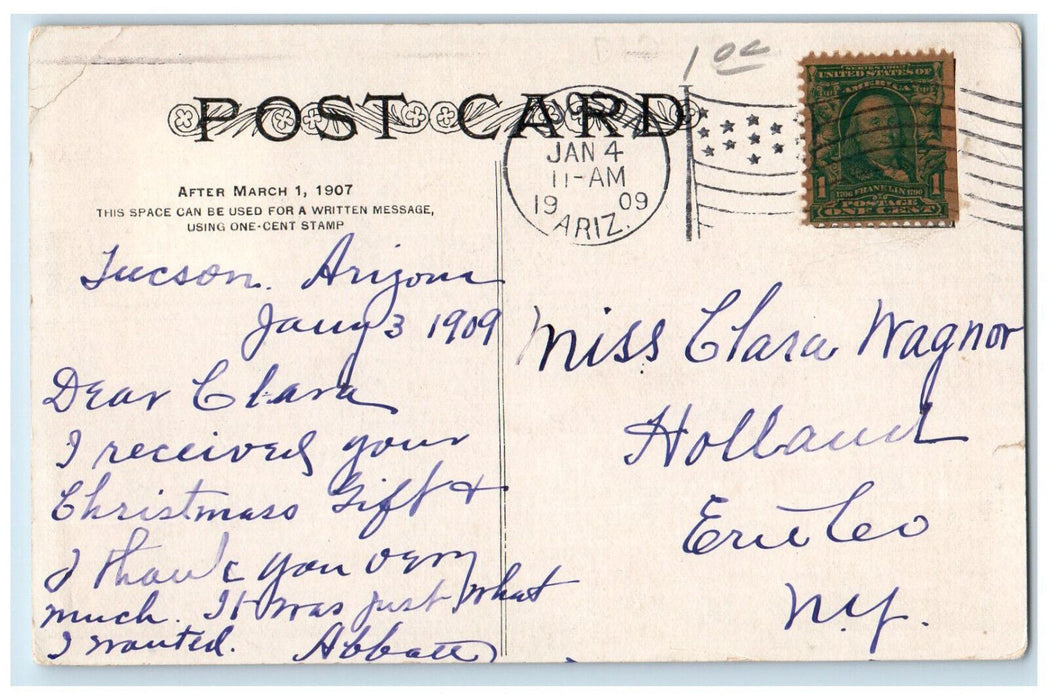 1 00
POST CARD
AFTER MARCH 1, 1907
THIS SPACE CAN BE USED FOR A WRITTEN MESSAGE,
USING ONE-CENT STAMP
JAN 4
11-AM
1909
ARIZ.
SERIES 1902
UNITED STATES OF
AMERICA
1706 FRANKLIN 1790
1 1
POSTAGE
ONE CENT
Tucson. Arizona
Jany 3 1909
Dear Clara
I received your
Christmass Gift &
I thank you very
much. It was just what
I wanted. Abbott
Miss Clara Wagnor
Holland
Erie Co
N.Y.